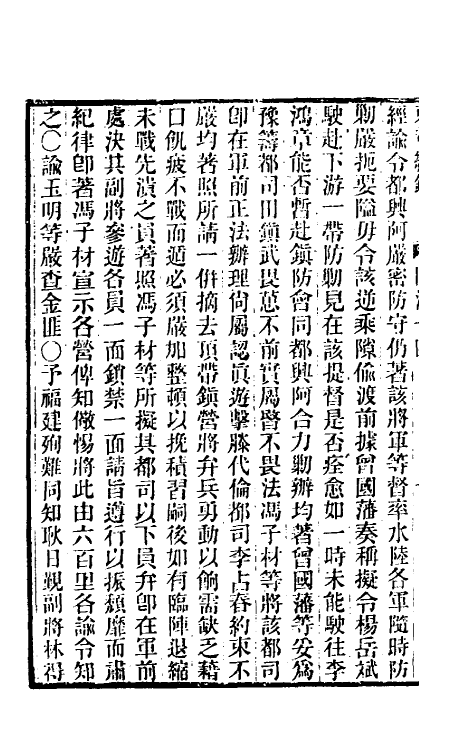 經諭令都興阿嚴密防守仍著該將軍等督率水陸各軍隨時防
勦嚴扼要隘毋令該逆乘隙偷渡前據曾國藩奏稱擬令楊岳斌
駛赴下游一帶防勦見在該提督是否痊愈如一時未能駛往李
鴻章能否暫赴鎮防會同都興阿合力勦辦均著曾國藩等妥爲
豫籌都司田鎮武畏葸不前實屬瞖不畏法馮子材等將該都司
卽在軍前正法辦理尙屬認眞遊擊滕代倫都司李占春約束不
嚴均著照所請一併摘去頂帶鎮營將弁兵勇動以餉需缺乏藉
口飢疲不戰而遁必須嚴加整頓以挽積習嗣後如有臨陣退縮
未戰先潰之員著照馮子材等所擬其都司以下員弁卽在軍前
處決其副將參遊各員一面鎖禁一面請旨遵行以振頹靡而肅
紀律卽著馮子材宣示各營俾知儆惕將此由六百里各諭令知
之○諭玉明等嚴查金匪○予福建殉難同知耿日覲副將林得